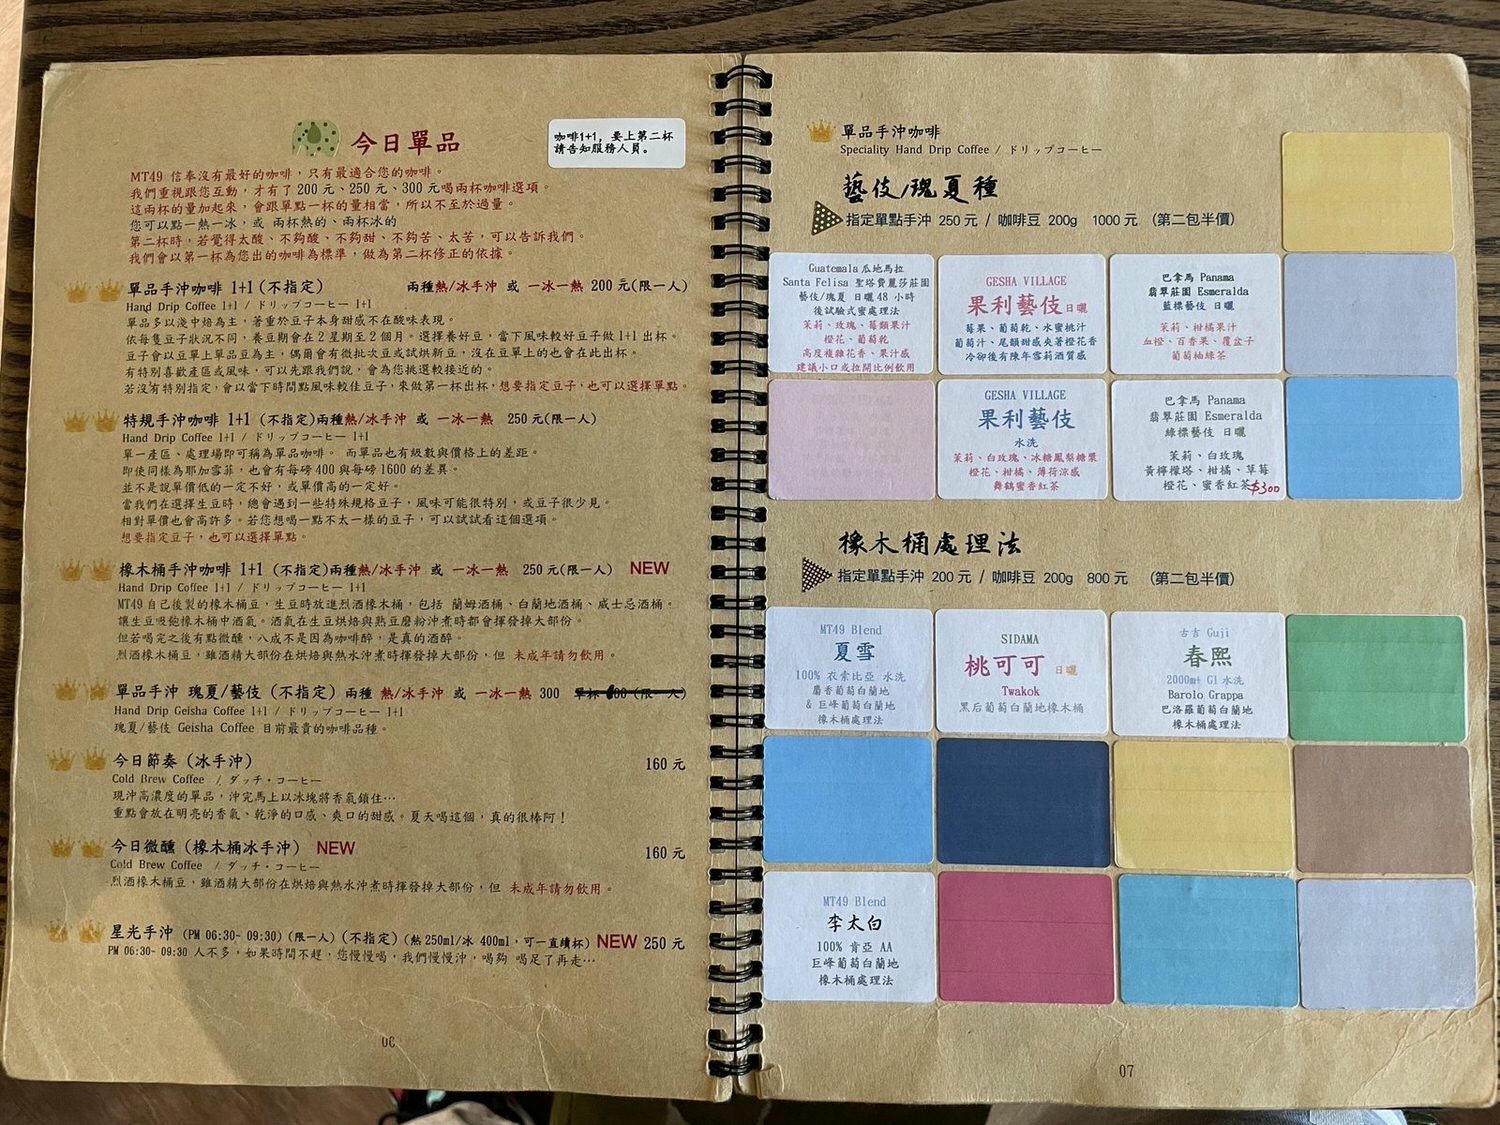 今日單品
咖啡1+1, 要上第二杯
請告知服務人員。
MT49 信奉沒有最好的咖啡，只有最適合您的咖啡。
我們重視跟您互動，才有了 200 元、250 元、300 元喝兩杯咖啡選項。
這兩杯的量加起來，會跟單點一杯的量相當，所以不至於過量。
您可以點一熱一冰，或 兩杯熱的、兩杯冰的
第二杯時，若覺得太酸、不夠酸、不夠甜、不夠苦、太苦，可以告訴我們。
我們會以第一杯為您出的咖啡為標準，做為第二杯修正的依據。
單品手沖咖啡 1+1 (不指定) 兩種熱/冰手沖 或 一冰一熱 200 元(限一人)
Hand Drip Coffee 1+1 / ドリップコーヒー 1+1
單品多以淺中焙為主，著重於豆子本身甜感不在酸味表現。
依每隻豆子狀況不同，養豆期會在 2 星期至 2 個月。選擇養好豆，當下風味較好豆子做 1+1 出杯。
豆子會以豆單上單品豆為主，偶爾會有微批次豆或試烘新豆，沒在豆單上的也會在此出杯。
有特別喜歡產區或風味，可以先跟我們說，會為您挑選較接近的。
若沒有特別指定，會以當下時間點風味較佳豆子，來做第一杯出杯，想要指定豆子，也可以選擇單點。
特規手沖咖啡 1+1 (不指定)兩種熱/冰手沖 或 一冰一熱 250 元(限一人)
Hand Drip Coffee 1+1 / ドリップコーヒー 1+1
單一產區、處理場即可稱為單品咖啡。 而單品也有級數與價格上的差距。
即使同樣為耶加雪菲，也會有每磅 400 與每磅 1600 的差異。
並不是說單價低的一定不好，或單價高的一定好。
當我們在選擇生豆時，總會遇到一些特殊規格豆子，風味可能很特別，或豆子很少見。
相對單價也會高許多。若您想喝一點不太一樣的豆子，可以試試看這個選項。
想要指定豆子，也可以選擇單點。
橡木桶手沖咖啡 1+1 (不指定)兩種熱/冰手沖 或 一冰一熱 250 元(限一人) NEW
Hand Drip Coffee 1+1 / ドリップコーヒー 1+1
MT49 自己後製的橡木桶豆，生豆時放進烈酒橡木桶，包括 蘭姆酒桶、白蘭地酒桶、威士忌酒桶。
讓生豆吸飽橡木桶中酒氣。酒氣在生豆烘焙與熟豆磨粉沖煮時都會揮發掉大部份。
但若喝完之後有點微醺，八成不是因為咖啡醉，是真的酒醉。
烈酒橡木桶豆，雖酒精大部份在烘焙與熱水沖煮時揮發掉大部份，但 未成年請勿飲用。
單品手沖 瑰夏/藝伎 (不指定) 兩種 熱/冰手沖 或 一冰一熱 300
Hand Drip Geisha Coffee 1+1 / ドリップコーヒー 1+1
瑰夏/藝伎 Geisha Coffee 目前最貴的咖啡品種。
今日節奏 (冰手沖) 160 元
Cold Brew Coffee / ダッチ・コーヒー
現沖高濃度的單品，沖完馬上以冰塊將香氣鎖住…
重點會放在明亮的香氣、乾淨的口感、爽口的甜感。夏天喝這個，真的很棒阿！
今日微醺 (橡木桶冰手沖) NEW 160 元
Cold Brew Coffee / ダッチ・コーヒー
烈酒橡木桶豆，雖酒精大部份在烘焙與熱水沖煮時揮發掉大部份，但 未成年請勿飲用。
星光手沖 (PM 06:30~ 09:30) (限一人) (不指定) (熱 250ml/冰 400ml，可一直續杯) NEW 250 元
PM 06:30~ 09:30 人不多，如果時間不趕，您慢慢喝，我們慢慢沖，喝夠 喝足了再走…
06
單品手沖咖啡
Speciality Hand Drip Coffee / ドリップコーヒー
藝伎/瑰夏種
指定單點手沖 250 元 / 咖啡豆 200g 1000 元 （第二包半價）
Guatemala 瓜地馬拉
Santa Felisa 聖塔費麗莎莊園
藝伎/瑰夏 日曬 48 小時
後試驗式蜜處理法
茉莉、玫瑰、莓類果汁
橙花、葡萄乾
高度複雜花香、果汁感
建議小口或拉開比例飲用
GESHA VILLAGE
果利藝伎 日曬
莓果、葡萄乾、水蜜桃汁
葡萄汁、尾韻甜感夾著橙花香
冷卻後有陳年雪莉酒質感
巴拿馬 Panama
翡翠莊園 Esmeralda
藍標藝伎 日曬
茉莉、柑橘果汁
血橙、百香果、覆盆子
葡萄柚綠茶
GESHA VILLAGE
果利藝伎
水洗
茉莉、白玫瑰、冰糖鳳梨糖漿
橙花、柑橘、薄荷涼感
舞鶴蜜香紅茶
巴拿馬 Panama
翡翠莊園 Esmeralda
綠標藝伎 日曬
茉莉、白玫瑰
黃檸檬塔、柑橘、草莓
橙花、蜜香紅茶 $300
橡木桶處理法
指定單點手沖 200 元 / 咖啡豆 200g 800 元 （第二包半價）
MT49 Blend
夏雪
100% 衣索比亞 水洗
麝香葡萄白蘭地
& 巨峰葡萄白蘭地
橡木桶處理法
SIDAMA
桃可可 日曬
Twakok
黑后葡萄白蘭地橡木桶
古吉 Guji
春熙
2000m+ G1 水洗
Barolo Grappa
巴洛羅葡萄白蘭地
橡木桶處理法
MT49 Blend
李太白
100% 肯亞 AA
巨峰葡萄白蘭地
橡木桶處理法
07